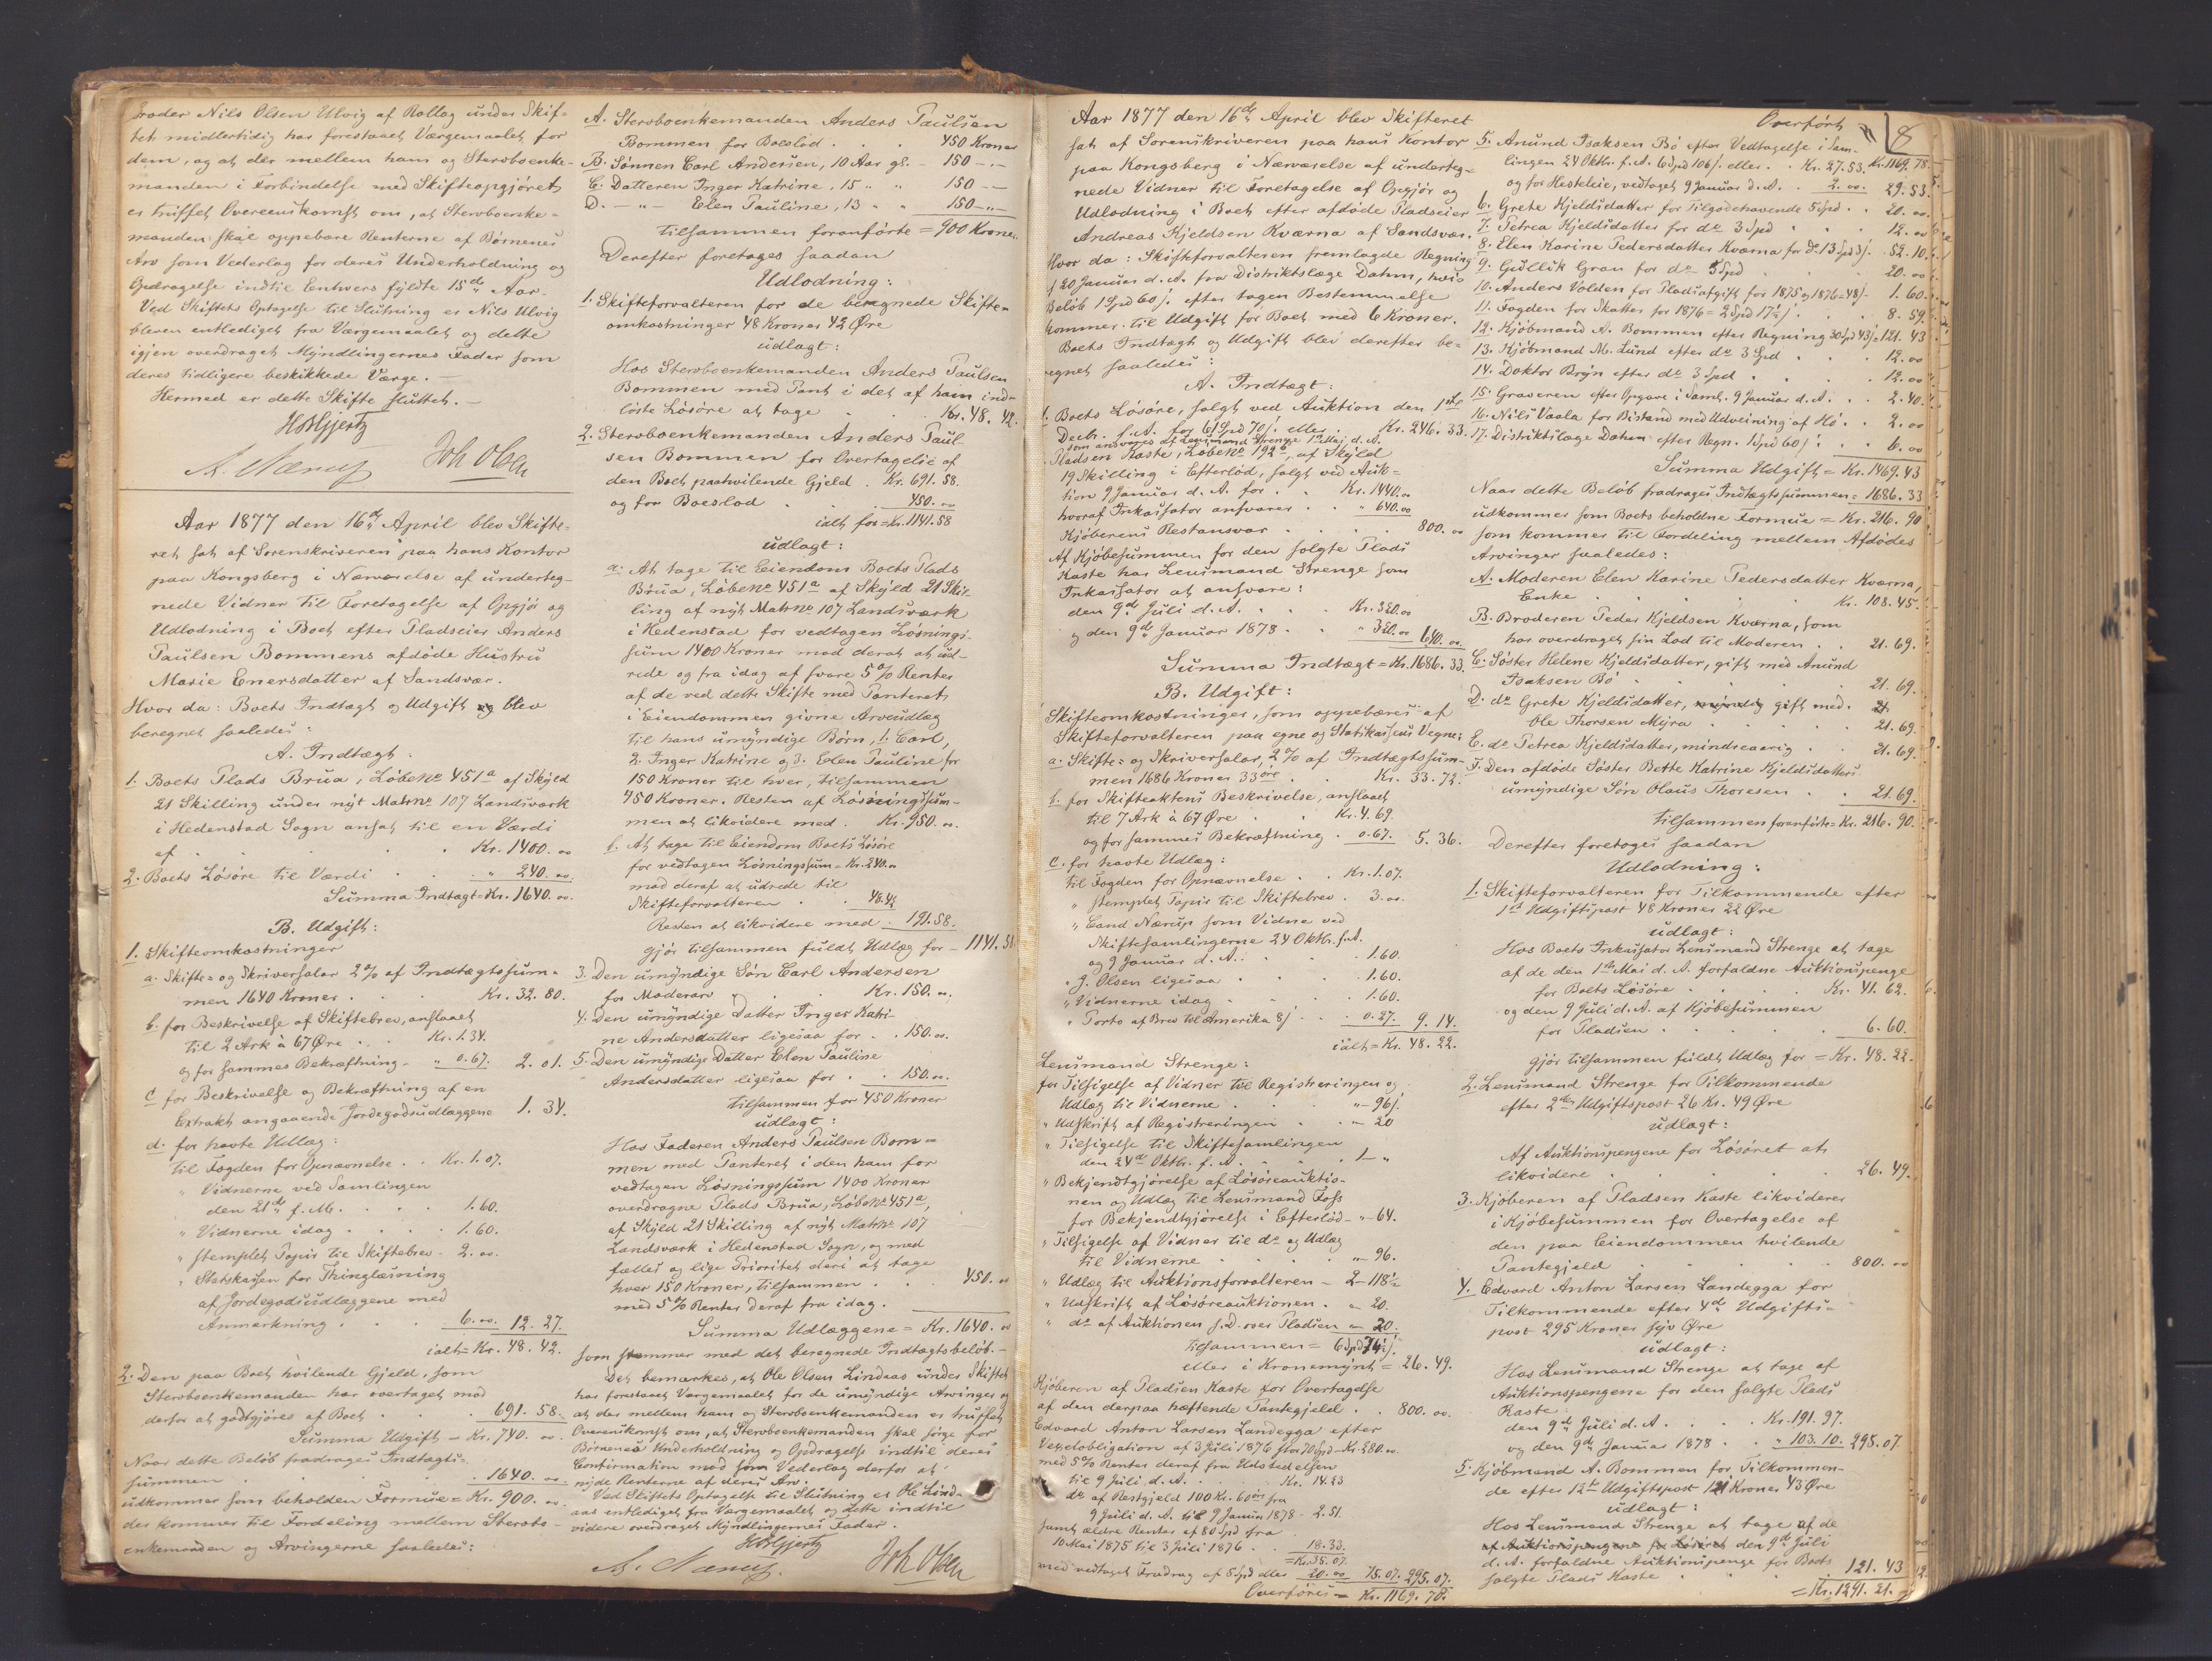 Broder Nils Olsen Ulvig af Rollag under Skif-
tet midlertidig har forestaaet Værgemaalet for
dem, og at der mellem ham og Stervboenke-
manden i Forbindelse med Skifteopgjøret
er truffet Overeenskomst om, at Stervboenke-
manden skal oppebære Renterne af Børnenes
Arv som Vederlag for deres Underholdning og
Opdragelse indtil Enhvers fyldte 15de Aar.
Ved Skiftets Optagelse til Slutning er Nils Ulvig
bleven entlediget fra Værgemaalet og dette
igjen overdraget Myndlingernes Fader som
deres tidligere beskikkede Værge. —
Hermed er dette Skifte sluttet. —
A. Nærup Joh Olsen
Aar 1877 den 16de April blev Skifte-
ret sat af Sorenskriveren paa hans Kontor
paa Kongsberg i Nærværelse af underteg-
nede Vidner til Foretagelse af Opgjør og
Udlodning i Boet efter Pladseier Anders
Paulsen Bommens afdøde Hustru
Marie Enersdatter af Sandsvær.
Hvor da: Boets Indtægt og Udgift blev
beregnet saaledes:
A. Indtægt:
1. Boets Plads Brua, Løbeno 451a af Skyld
21 Skilling under nyt Matrno 107 Landsværk
i Hedenstad Sogn ansat til en Værdi
af . . . Kr. 1400. 00
2. Boets Løsøre til Værdi . . " 240. 00.
Summa Indtægt = Kr. 1640. 00.
B. Udgift:
1. Skifteomkostninger
a. Skifte- og Skriversalær 2 % af Indtægtssum-
men 1640 Kroner . . . Kr. 32. 80.
b. for Beskrivelse af Skiftebrev, anslaaet
til 2 Ark à 67 Øre . . Kr. 1.34.
og for sammes Bekræftning - " 0.67. 2. 01.
c. for Beskrivelse og Bekræftning af en
Extrakt angaaende Jordegodsudlæggene 1. 34.
d. for havte Udlæg:
til Fogden for Opnævnelse . . Kr. 1. 07.
" Vidnerne ved Samlingen
den 21de f. M. . . . 1.60.
" Vidnerne idag . . . . 1.60.
" stemplet Papir til Skiftebrev - 2. 00.
" Statskassen for Thinglæsning
af Jordegodsudlæggene med
Anmærkning . . . 6. 00. 12. 27.
ialt = Kr. 48. 42.
2. Den paa Boet hvilende Gjeld, som
Stervboenkemanden har overtaget mod
derfor at godtgjøres af Boet . . . 691. 58.
Summa Udgift = Kr. 740. 00.
Naar dette Beløb fradrages Indtægts-
summen . . . 1640. 00.
udkommer som beholden Formue = Kr. 900. 00.
der kommer til Fordeling mellem Stervbo-
enkemanden og Arvingerne saaledes:
A. Stervboenkemanden Anders Paulsen
Bommen for Boeslod . . . 450 Kroner
B. Sønnen Carl Andersen, 10 Aar gl. - 150 -"-
C. Datteren Inger Katrine, 15 " " 150 --
D. - " - Elen Pauline, 13 " " 150 -"-
tilsammen foranførte = 900 Kroner.
Derefter foretoges saadan
Udlodning:
1. Skifteforvalteren for de beregnede Skifte-
omkostninger 48 Kroner 42 Øre
udlagt:
Hos Stervboenkemanden Anders Paulsen
Bommen med Pant i det af ham ind-
løste Løsøre at tage . . Kr. 48. 42.
2. Stervboenkemanden Anders Paul-
sen Bommen for Overtagelse af
den Boet paahvilende Gjeld . Kr. 691. 58.
og for Boeslod . . . 450. 00
ialt for = Kr. 1141.58
udlagt:
a. At tage til Eiendom Boets Plads
Brua, Løbeno 451a af Skyld 21 Skil-
ling af nyt Matrno 107 Landsværk
i Hedenstad for vedtagen Løsnings-
sum 1400 Kroner mod deraf at ud-
rede og fra idag af svare 5 % Renter
af de ved dette Skifte med Panteret
i Eiendommen givne Arveudlæg
til hans umyndige Børn, 1. Carl,
2. Inger Katrine og 3. Elen Pauline for
150 Kroner til hver, tilsammen
450 Kroner. Resten af Løsningssum-
men at likvidere med . Kr. 950. 00.
b. At tage til Eiendom Boets Løsøre
for vedtagen Løsningssum = Kr. 240. 00
mod deraf at udrede til
Skifteforvalteren . . 48.42
Resten at likvidere med . 191.58.
gjør tilsammen fuldt Udlæg for - 1141.58
3. Den umyndige Søn Carl Andersen
for Moderarv . . Kr. 150. 00.
4. Den umyndige Datter Inger Katri-
ne Andersdatter ligesaa for . . 150. 00.
5. Den umyndige Datter Elen Pauline
Andersdatter ligesaa for . . 150. 00.
tilsammen for 450 Kroner
udlagt:
Hos Faderen Anders Paulsen Bom-
men med Panteret i den ham for
vedtagen Løsningssum 1400 Kroner
overdragne Plads Brua, Løbeno 451a,
af Skyld 21 Skilling af nyt Matrno 107
Landsværk i Hedenstad Sogn, og med
fælles og lige Prioritet deri at tage
hver 150 Kroner, tilsammen . . 450. 00
med 5 % Renter deraf fra idag.
Summa Udlæggene = Kr. 1640. 00
som stemmer med det beregnede Indtægtsbeløb. -
Det bemærkes, at Ole Olsen Lindaas under Skiftet
har forestaaet Værgemaalet for de umyndige Arvinger og
at der mellem ham og Stervboenkemanden er truffet
Overenskomst om, at Stervboenkemanden skal sørge for
Børnenes Underholdning og Opdragelse indtil deres
Confirmation mod som Vederlag derfor at
nyde Renterne af deres Arv.
Ved Skiftets Optagelse til Slutning er Ole Lind-
aas entlediget fra Værgemaalet og dette indtil
videre overdraget Myndlingernes Fader.
A. Nærup. Joh Olsen
Aar 1877 den 16de April blev Skifteret
sat af Sorenskriveren paa hans Kontor
paa Kongsberg i Nærværelse af underteg-
nede Vidner til Foretagelse af Opgjør og
Udlodning i Boet efter afdøde Pladseier
Andreas Kjeldsen Kværna af Sandsvær.
Hvor da: Skifteforvalteren fremlagde Regning
af 20 Januar d. A. fra Distriktslæge Dahm, hvis
Beløb 1 Spd 60 s. efter tagen Bestemmelse
kommer til Udgift for Boet med 6 Kroner.
Boets Indtægt og Udgift blev derefter be-
regnet saaledes:
A. Indtægt:
1. Boets Løsøre, solgt ved Auktion den 1ste
Decbr. f. A. for 61 Spd 70 s. eller . Kr. 246. 33.
som ansvares af Lensmand Strenge 1ste Mai d. A.
Pladsen Kaste, Løbeno 192b, af Skyld
19 Skilling i Efterlød, solgt ved Auk-
tion 9 Januar d. A. for . . Kr. 1440. 00
hvoraf Inkassator ansvarer . . " 640. 00
Kjøberens Restansvar . . . 800. 00
Af Kjøbesummen for den solgte Plads
Kaste har Lensmand Strenge som
Inkassator at ansvare:
den 9de Juli d. A. . . . Kr. 320. 00
og den 9de Januar 1878 . . " 320. 00 640. 00.
Summa Indtægt = Kr. 1686. 33.
B. Udgift:
Skifteomkostninger, som oppebæres af
Skifteforvalteren paa egne og Statskassens Vegne:
a. Skifte- og Skriversalær, 2 % af Indtægtssum-
men 1686 Kroner 33 øre . . Kr. 33. 72.
b. for Skifteaktens Beskrivelse, anslaaet
til 7 Ark à 67 Øre . . Kr. 4. 69.
og for sammes Bekræftning . 0.67. 5. 36.
c. for havte Udlæg:
til Fogden for Opnævnelse . . Kr. 1. 07.
" stemplet Papir til Skiftebrev . 3. 00.
" Cand Nærup som Vidne ved
Skiftesamlingerne 24 Oktb. f. A.
og 9 Januar d. A. . . . 1.60.
" J. Olsen ligesaa . . . 1.60.
" Vidnerne idag . . . 1.60.
" Porto af Brev til Amerika 8 s. . . 0. 27. 9. 14.
ialt = Kr. 48. 22.
Lensmand Strenge:
for Tilsigelse af Vidner til Registreringen og
Udlæg til Vidnerne . . . " - 96 s.
" Udskrift af Registreringen . . " - 20
" Tilsigelse til Skiftesamlingen
den 24de Oktbr. f. A. . . . 1 - "
" Bekjendtgjørelse af Løsøreauktio-
nen og Udlæg til Lensmand Foss
for Bekjendtgjørelse i Efterlød - " - 64.
" Tilsigelse af Vidner til do og Udlæg
til Vidnerne . . . . " - 96.
" Udlæg til Auktionsforvalteren - 2 - 118½
" Udskrift af Løsøreauktionen . " 20.
" do af Auktionen s. D. over Pladsen " 20.
tilsammen = 6 Spd 74½ s.
eller i Kronemynt = 26. 49.
Kjøberen af Pladsen Kaste for Overtagelse
af den derpaa heftende Pantegjeld . . 800. 00.
Edvard Anton Larsen Landegga efter
Vexelobligation af 3 Juli 1876 stor 70 Spd - Kr. 280. 00.
med 5 % Renter deraf fra Udstedelsen
til 9 Juli d. A. . . . Kr. 14. 23
do af Restgjeld 100 Kr. 60 øre fra
9 Juli d. A. til 9 Januar 1878 - 2. 51.
samt ældre Renter af 80 Spd fra
10 Mai 1875 til 3 Juli 1876 . . 18. 33.
= Kr. 35. 07.
med vedtaget Fradrag af 5 Spd eller 20. 00 15. 07. 295. 07.
Overføres = Kr. 1169. 78.
Overført 8
5. Anund Isaksen Bø efter Vedtagelse i Sam- Kr. 1169. 78.
lingen 24 Oktbr. f. A. 6 Spd 106 s. eller . . Kr. 27. 53.
og for Hesteleie, vedtaget 9 Januar d. A. . 2. 00. 29. 53.
6. Grete Kjeldsdatter for Tilgodehavende 5 Spd . . 20. 00.
7. Petrea Kjeldsdatter for do 3 Spd . . 12. 00
8. Elen Karine Pedersdatter Kværna for do 13 Spd 3 s. . 52. 10.
9. Gullik Gran for do 5 Spd . . 20. 00
10. Anders Volden for Pladsafgift for 1875 og 1876 = 48 s. - 1. 60.
11. Fogden for Skatter for 1876 = 2 Spd 17½ s. . . 8. 59.
12. Kjøbmand A. Bommen efter Regning 30 Spd 43 s. = 121. 43
13. Kjøbmand M. Lund efter do 3 Spd . . 12. 00
14. Doktor Bryn efter do 3 Spd . . . 12. 00
15. Graveren efter Opgave i Saml. 9 Januar d. A. . . 2. 40.
16. Nils Vaala for Bistand med Udveining af Hø . . 2. 00
17. Distriktslæge Dahm efter Regn. 1 Spd 60 s. . . 6. 00
Summa Udgift = Kr. 1469. 43
Naar dette Beløb fradrages Indtægtssummen = 1686. 33
udkommer som Boets beholdne Formue = Kr. 216. 90
som kommer til Fordeling mellem Afdødes
Arvinger saaledes:
A. Moderen Elen Karine Pedersdatter Kværna,
Enke . . . Kr. 108. 45.
B. Broderen Peder Kjeldsen Kværna, som
har overdraget sin Lod til Moderen . . 21. 69.
C. Søster Helene Kjeldsdatter, gift med Anund
Isaksen Bø . . . 21. 69.
D. do Grete Kjeldsdatter, myndig gift med
Ole Thorsen Myra . . . 21. 69.
E. do Petrea Kjeldsdatter, mindreaarig . . 21. 69.
F. Den afdøde Søster Berte Katrine Kjeldsdatters
umyndige Søn Olaus Thoresen . . 21. 69.
tilsammen foranførte = Kr. 216. 90.
Derefter foretoges saadan
Udlodning:
1. Skifteforvalteren for Tilkommende efter
1ste Udgiftspost 48 Kroner 22 Øre
udlagt:
Hos Boets Inkassator Lensmand Strenge at tage
af de den 1ste Mai d. A. forfaldne Auktionspenge
for Boets Løsøre . . . Kr. 41. 62.
og den 9 Juli d. A. af Kjøbesummen
for Pladsen . . . . 6. 60.
gjør tilsammen fuldt Udlæg for = Kr. 48. 22.
2. Lensmand Strenge for Tilkommende
efter 2den Udgiftspost 26 Kr. 49 Øre
udlagt:
Af Auktionspengene for Løsøret at
likvidere . . . . 26. 49.
3. Kjøberen af Pladsen Kaste likviderer
i Kjøbesummen for Overtagelse af
den paa Eiendommen hvilende
Pantegjeld . . . . 800. 00
4. Edvard Anton Larsen Landegga for
Tilkommende efter 4de Udgifts-
post 295 Kroner syv Øre
udlagt:
Hos Lensmand Strenge at tage af
Auktionspengene for den solgte Plads
Kaste:
den 9de Juli d. A. . . . Kr. 191. 97.
og den 9de Januar 1878 . . " 103. 10. 295. 07.
5. Kjøbmand A. Bommen for Tilkommen-
de efter 12te Udgiftspost 121 Kroner 43 Øre
udlagt:
Hos Lensmand Strenge at tage af de
af Auktionspengene for Løsøret den 9de Juli
d. A. forfaldne Auktionspenge for Boets
solgte Plads Kaste . . . 121. 43
= Kr. 1291. 21.